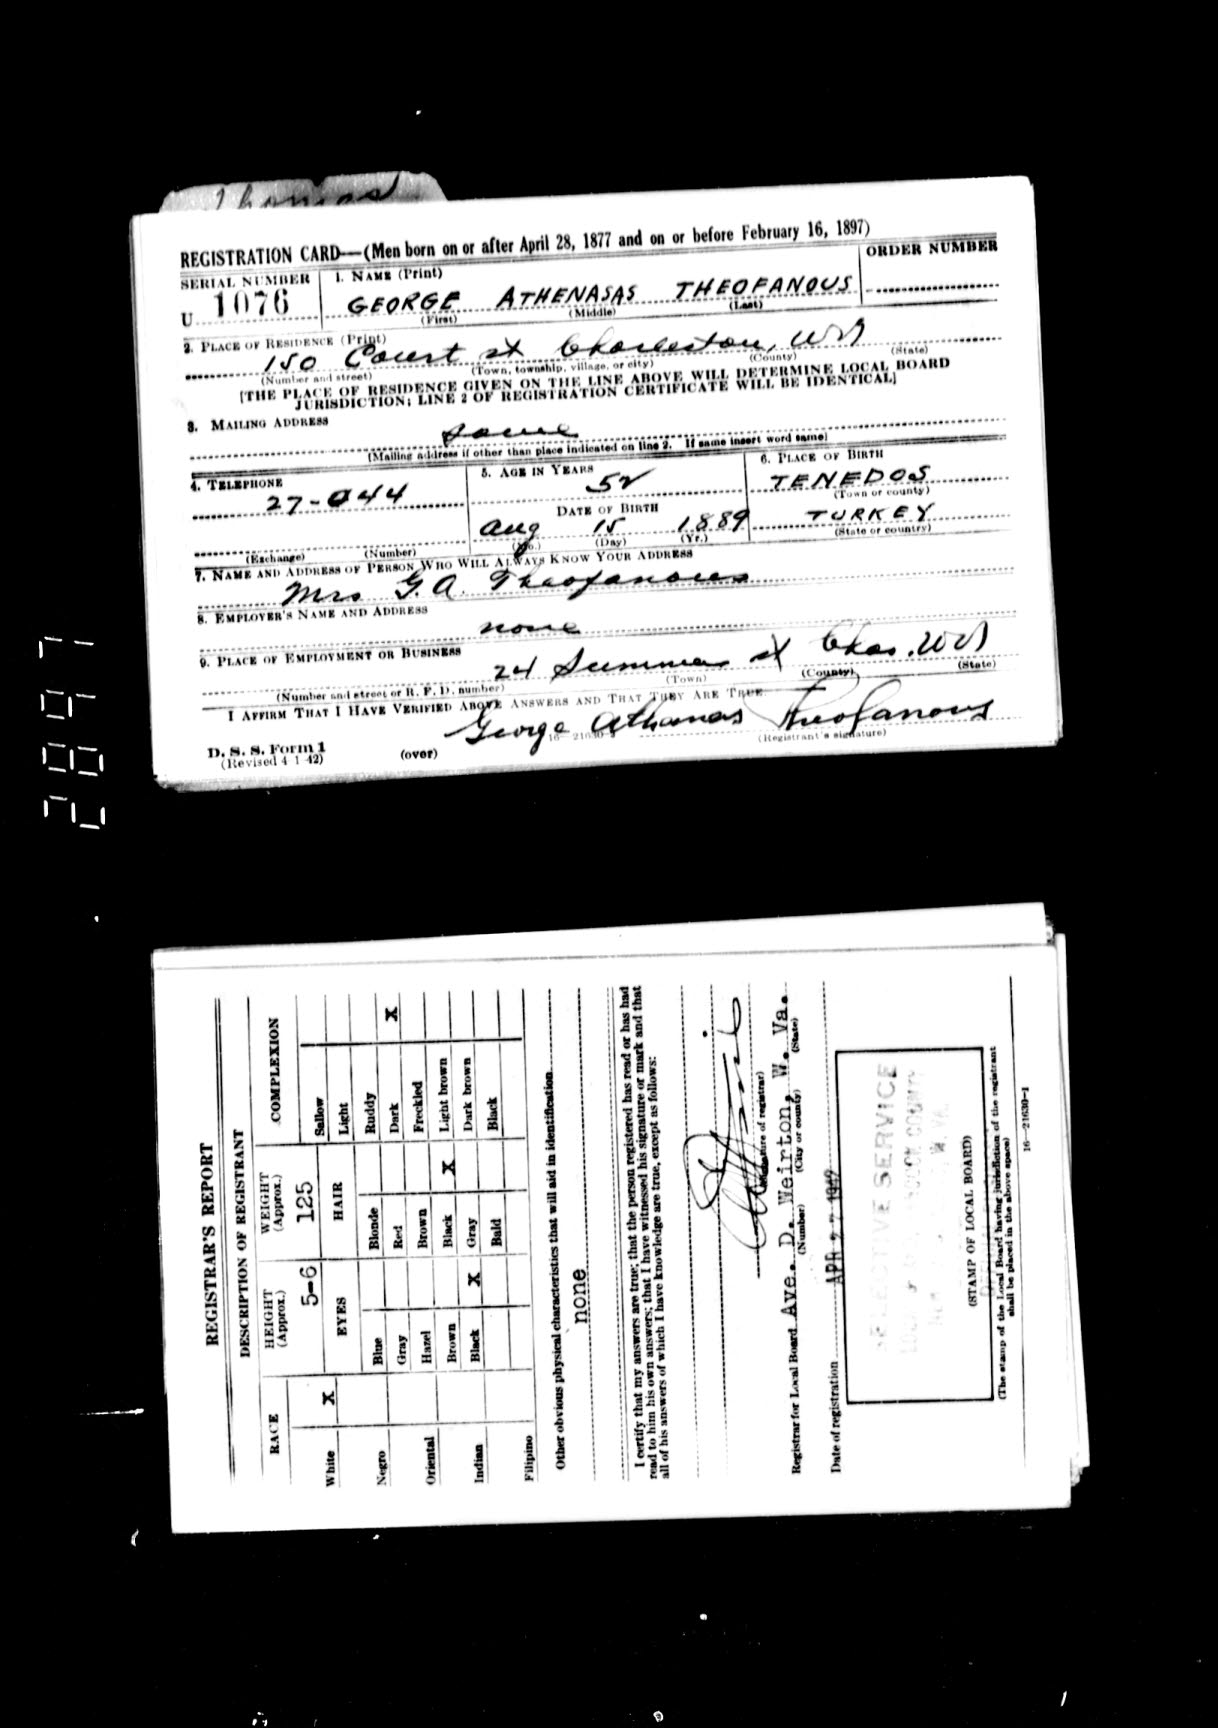 Thomas
REGISTRATION CARD—(Men born on or after April 28, 1877 and on or before February 16, 1897)
SERIAL NUMBER
U 1076
1. NAME (Print)
GEORGE ATHENASAS THEOFANOUS
(First) (Middle) (Last)
ORDER NUMBER
2. PLACE OF RESIDENCE (Print)
150 Court st Charleston, WVa
(Number and street) (Town, township, village, or city) (County) (State)
[THE PLACE OF RESIDENCE GIVEN ON THE LINE ABOVE WILL DETERMINE LOCAL BOARD
JURISDICTION; LINE 2 OF REGISTRATION CERTIFICATE WILL BE IDENTICAL]
3. MAILING ADDRESS
same
(Mailing address if other than place indicated on line 2. If same insert word same)
4. TELEPHONE
27-044
(Exchange) (Number)
5. AGE IN YEARS
52
DATE OF BIRTH
Aug 15 1889
(Mo.) (Day) (Yr.)
6. PLACE OF BIRTH
TENEDOS
(Town or county)
TURKEY
(State or country)
7. NAME AND ADDRESS OF PERSON WHO WILL ALWAYS KNOW YOUR ADDRESS
Mrs G. A. Theofanous
8. EMPLOYER'S NAME AND ADDRESS
none
9. PLACE OF EMPLOYMENT OR BUSINESS
24 Summers st Chas. WVa
(Number and street or R. F. D. number) (Town) (County) (State)
I AFFIRM THAT I HAVE VERIFIED ABOVE ANSWERS AND THAT THEY ARE TRUE.
George Athanas Theofanous
D. S. S. Form 1
(Revised 4-1-42)
(over)
16—21630-1
(Registrant's signature)
28977
REGISTRAR'S REPORT
DESCRIPTION OF REGISTRANT
RACE
HEIGHT
(Approx.)
WEIGHT
(Approx.)
COMPLEXION
5-6
125
EYES
HAIR
White X
Negro
Oriental
Indian
Filipino
Blue
Gray
Hazel
Brown
Black X
Blonde
Red
Brown
Black X
Gray
Bald
Sallow
Light
Ruddy
Dark X
Freckled
Light brown
Dark brown
Black
Other obvious physical characteristics that will aid in identification
none
I certify that my answers are true; that the person registered has read or has had
read to him his own answers; that I have witnessed his signature or mark and that
all of his answers of which I have knowledge are true, except as follows:
(Signature of registrar)
Registrar for Local Board Ave. D. Weirton, W. Va.
(Number) (City or county) (State)
Date of registration APR 27 1942
SELECTIVE SERVICE
(STAMP OF LOCAL BOARD)
(The stamp of the Local Board having jurisdiction of the registrant
shall be placed in the above space)
16—21630-1